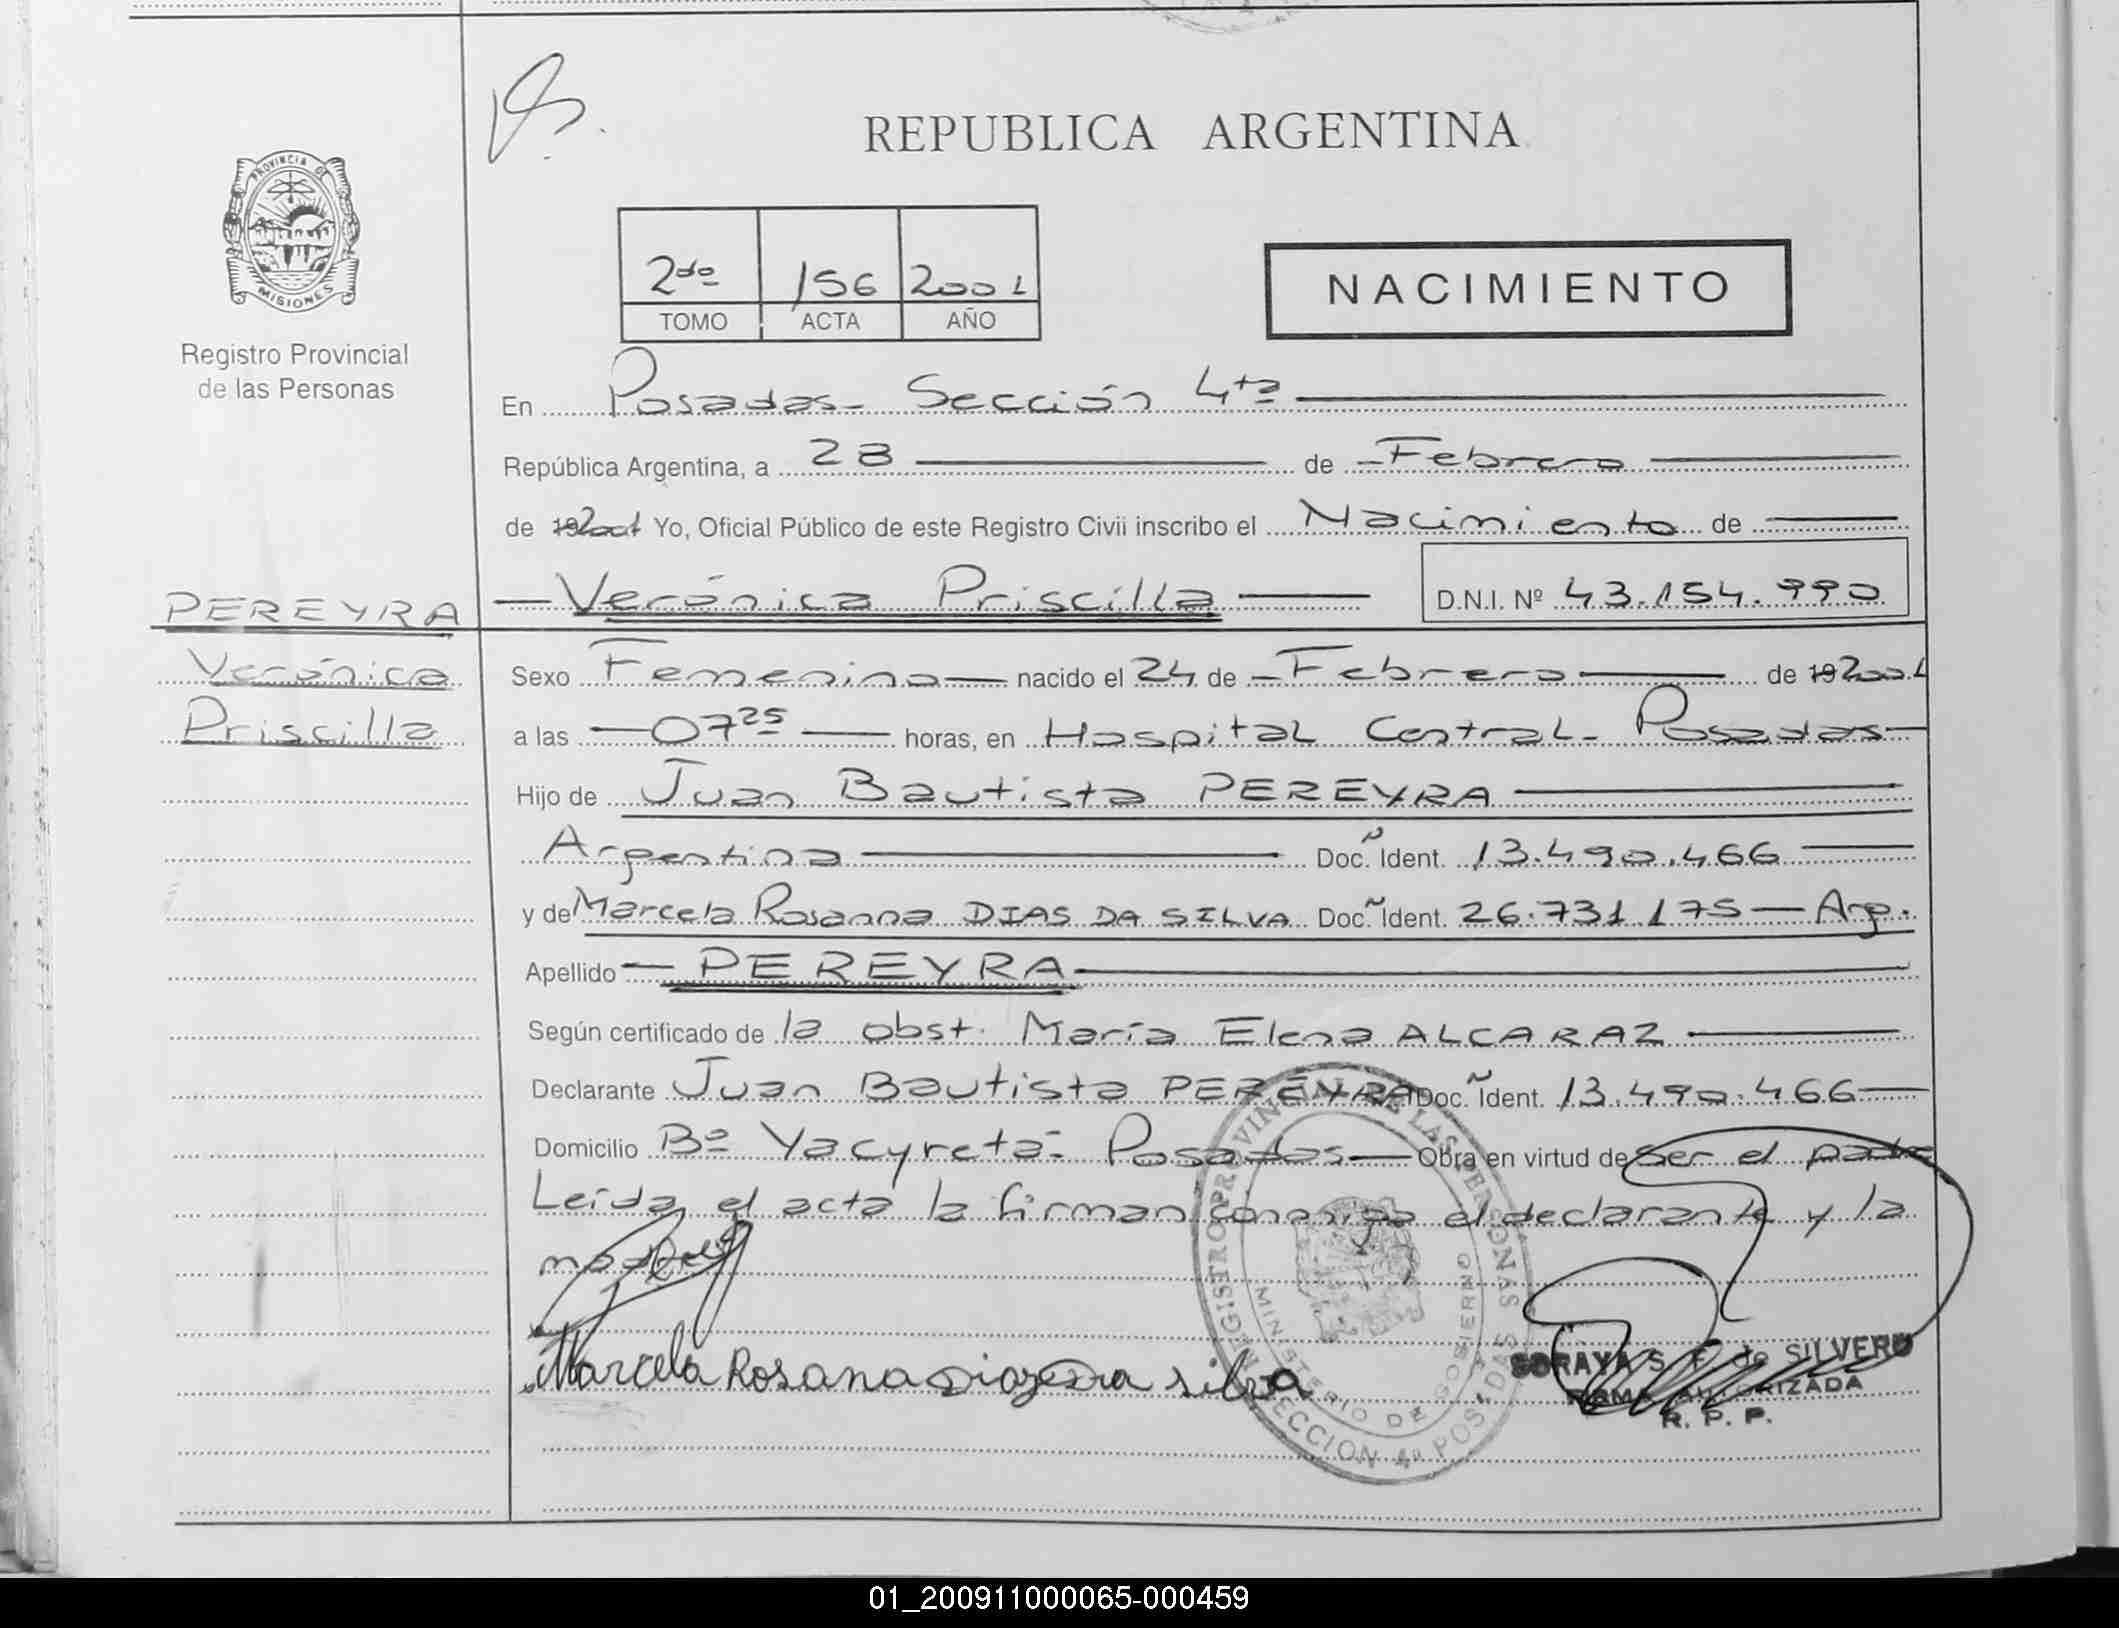 REPUBLICA ARGENTINA
PROVINCIA DE
MISIONES
Registro Provincial
de las Personas
2do 156 2001
TOMO ACTA AÑO
NACIMIENTO
En Posadas - Sección 4ta
República Argentina, a 28 de Febrero
de 192001 Yo, Oficial Público de este Registro Civil inscribo el Nacimiento de
PEREYRA
Verónica
Priscilla
Verónica Priscilla D.N.I. Nº 43.154.990
Sexo Femenino nacido el 24 de Febrero de 192001
a las 07 25 horas, en Hospital Central - Posadas
Hijo de Juan Bautista PEREYRA
Argentina Doc. Ident. 13.490.466
y de Marcela Rosanna DIAS DA SILVA Doc. Ident. 26.731.175 - Arg.
Apellido PEREYRA
Según certificado de la obst. María Elena ALCARAZ
Declarante Juan Bautista PEREYRA Doc. Ident. 13.490.466
Domicilio Bº Yacyretá - Posadas Obra en virtud de ser el padre
Leída el acta la firman conmigo el declarante y la
madre
Marcela Rosana Diaz Da silva
REGISTRO PROVINCIAL DE LAS PERSONAS
MINISTERIO DE GOBIERNO
SECCION 4ª POSADAS
SORAYA S. F. de SILVERO
FIRMA AUTORIZADA
R. P. P.
01_200911000065-000459